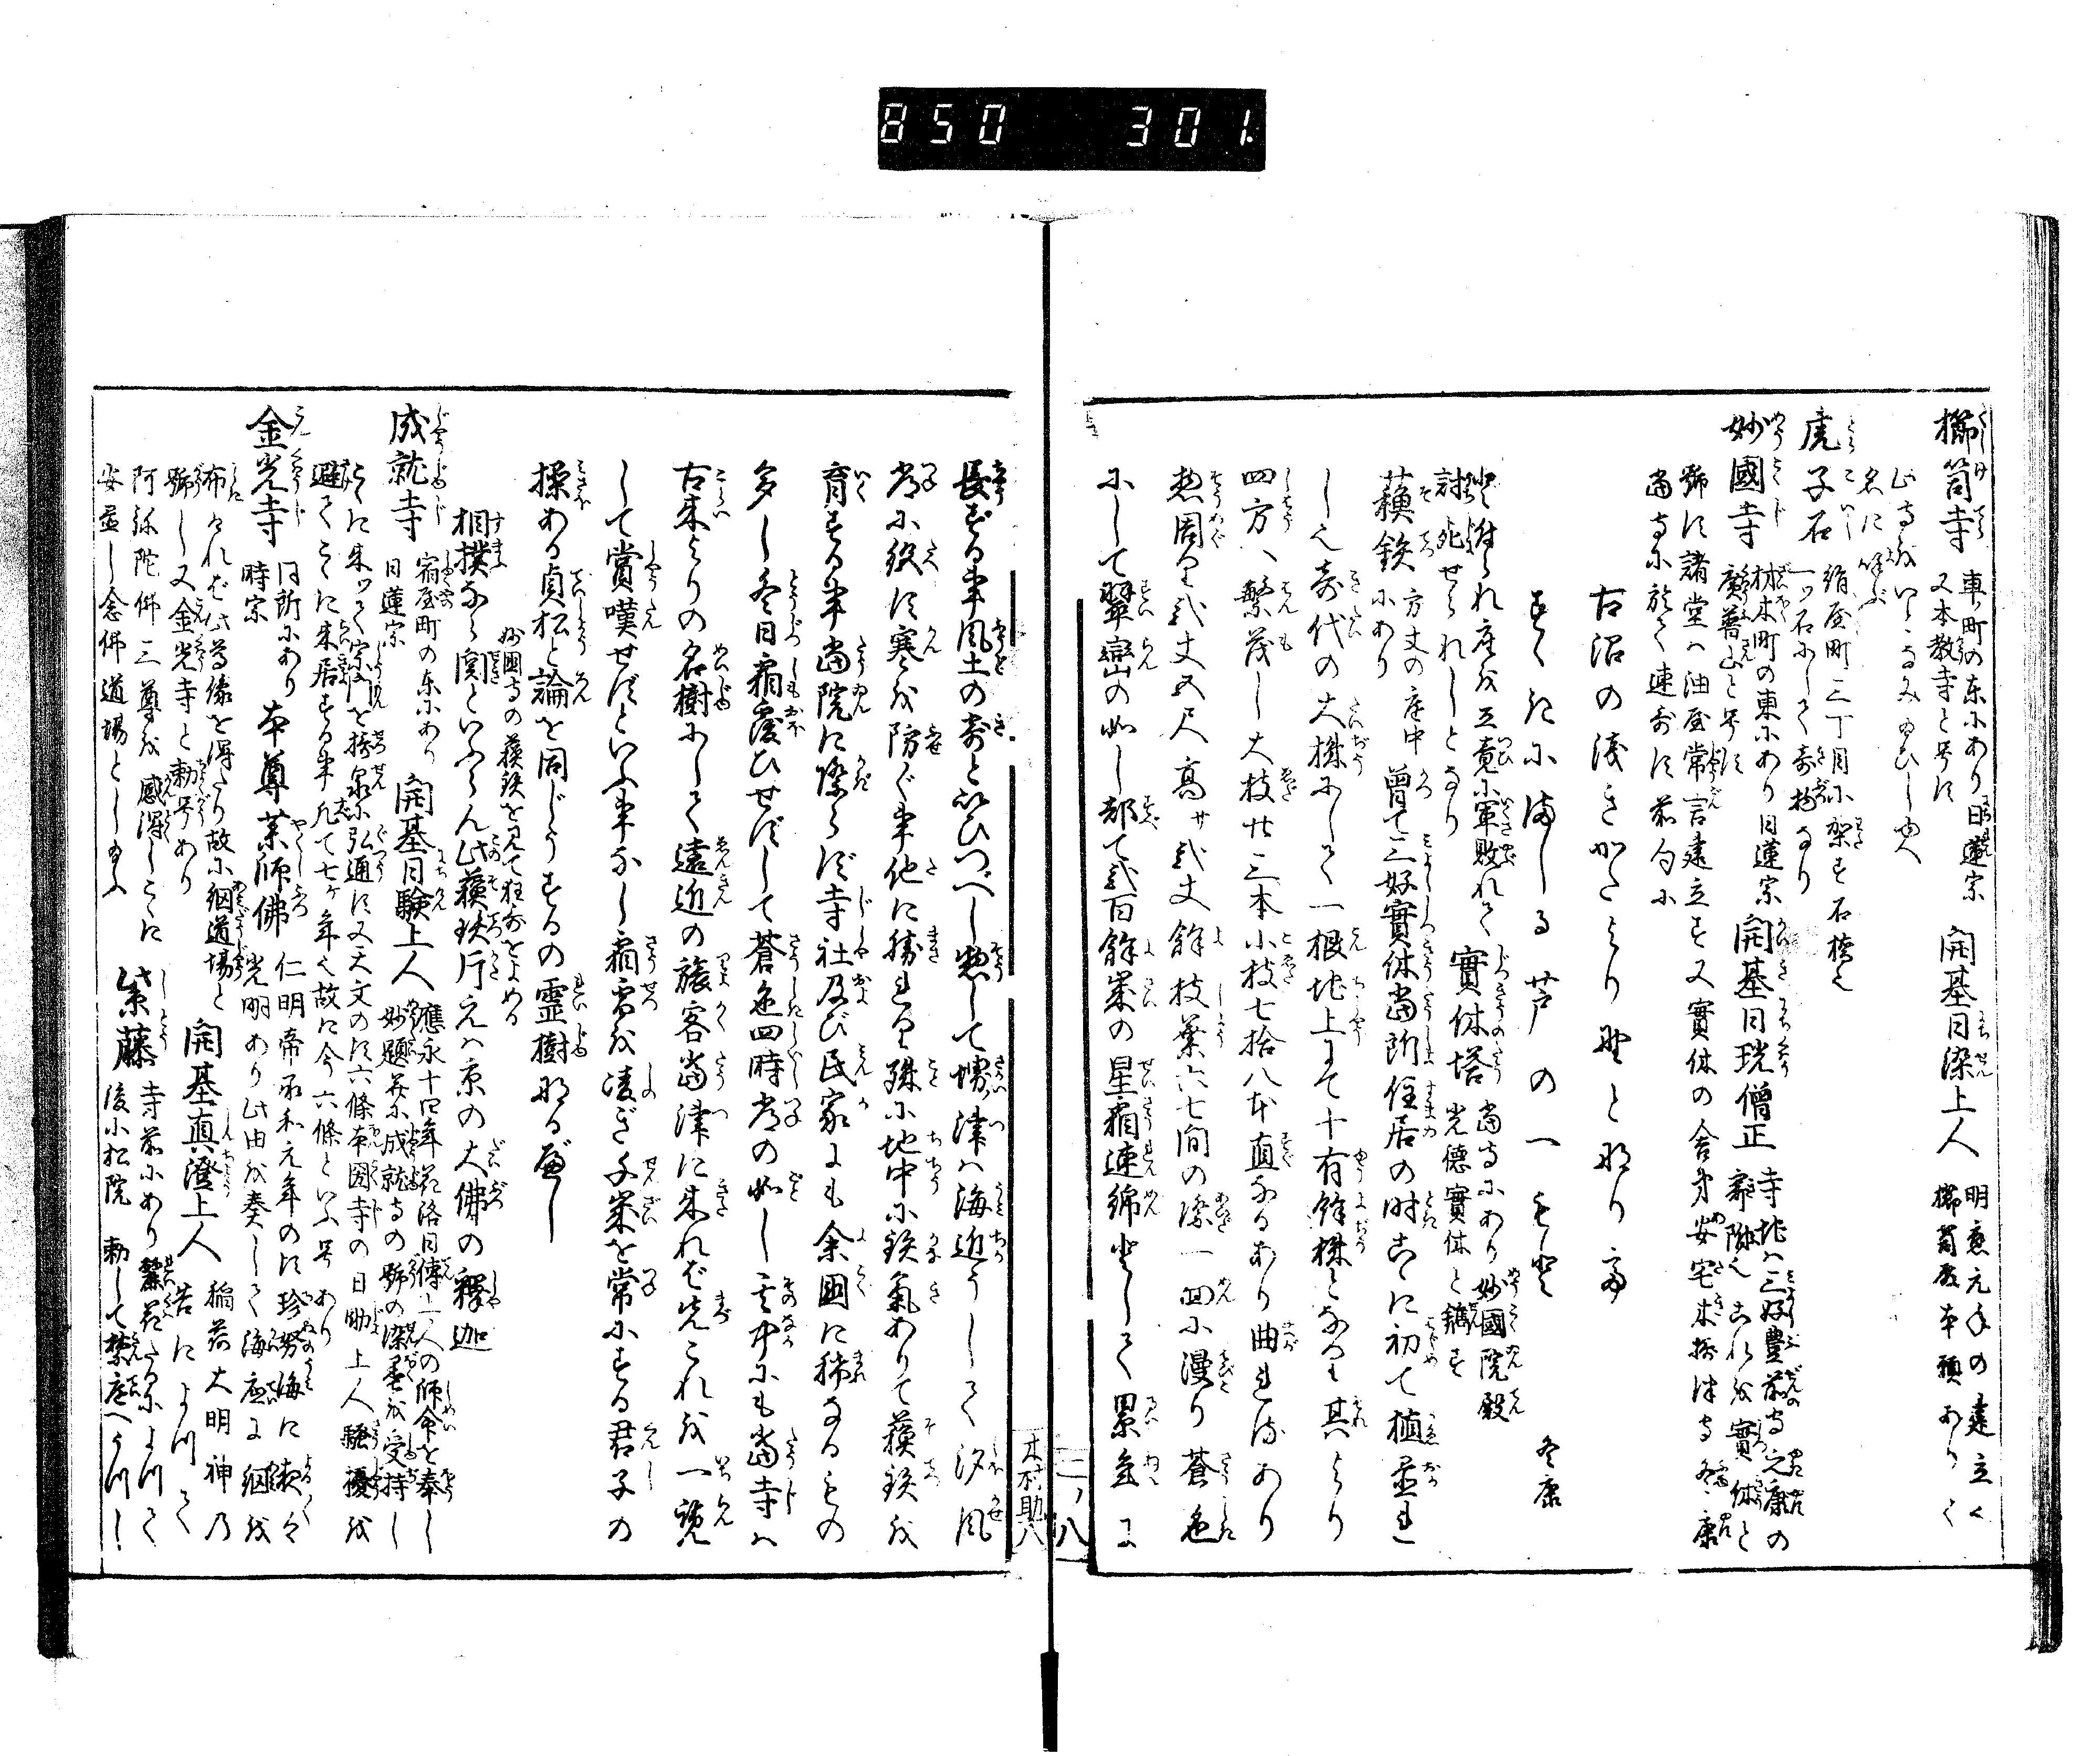 850 301
櫛笥寺 車町の東にあり日蓮宗 又本教寺と号す 開基日染上人 明應元年の建立 櫛笥 本願あり
名に
虎子石 絹屋町三丁目 石橋 一ツ石にして奇物なり
妙國寺 材木町の東にあり日蓮宗 廣普山と号す 開基日珖僧正 寺地は三好豊前守之康の 寄附也これを實休と
号す諸堂ハ油屋常言建立す又實休の舎弟安宅木摂津守冬康
當寺に於て連哥す前句に
古沼の浅きかたより野となりて
すゝきにまじる芦の一もと 冬康
討死せられしとなり 實休塔 當寺にあり妙國院殿 光徳實休と鐫す
蘓鉄 方丈の庭中にあり 曽て三好實休當所住居の時こゝに初て植置れ
し也奇代の大樹にして一根地上にて十有餘株となり其より
四方へ繁茂し大枝廿三本小枝七拾八本直なるあり曲れるあり
惣周り弐丈五尺高サ弐丈餘枝葉六七間の際一面に漫り蒼色
にして翠巒の如し都て弐百餘葉の星霜連綿として累益に
二ノ八
木村助八
長ずる事風土の奇と以ひつべし惣して堺津ハ海近うして汐風
常に絶ず寒を防ぐ事他に勝れり殊に地中に鉄氣ありて蘓鉄を
育する事當院に際らず寺社及び民家にも余國に稀なるもの
多し冬日霜覆ひせずして蒼色四時常の如し其中にも當寺ハ
古来よりの名樹にして遠近の旅客當津に来れば先これを一覧
して賞嘆せずといふ事なし霜雪を凌ぎ千葉を常にする君子の
操ある貞松と論を同じうするの靈樹なるべし
妙國寺の蘓鉄を見て狂哥をよめる
相撲なら関といふらん此蘓鉄片元ハ京の大佛の釋迦
成就寺 宿屋町の東にあり 日蓮宗 開基日験上人 應永十四年花洛日傳上人の師命を奉し 妙題并に成就寺の号の染墨を受持し
こゝに来つて宗門を摂泉に弘通す又天文の頃六條本國寺の日助上人騒擾を
避てこゝに来居する事凡て七ケ年也故に今六條といふ号あり
金光寺 同所にあり 時宗 本尊薬師佛 仁明帝承和元年の頃珍努海に夜々 光明あり此由を奏して海底に網を
布れば此尊像を得たり故に網道場と
号し又金光寺と勅号あり 開基真澄上人 稲荷大明神の 告によつて
阿弥陀佛三尊を感得しこゝに
安置し念佛道場とし給ふ 紫藤 寺前にあり 後小松院 勅して禁庭へうつし